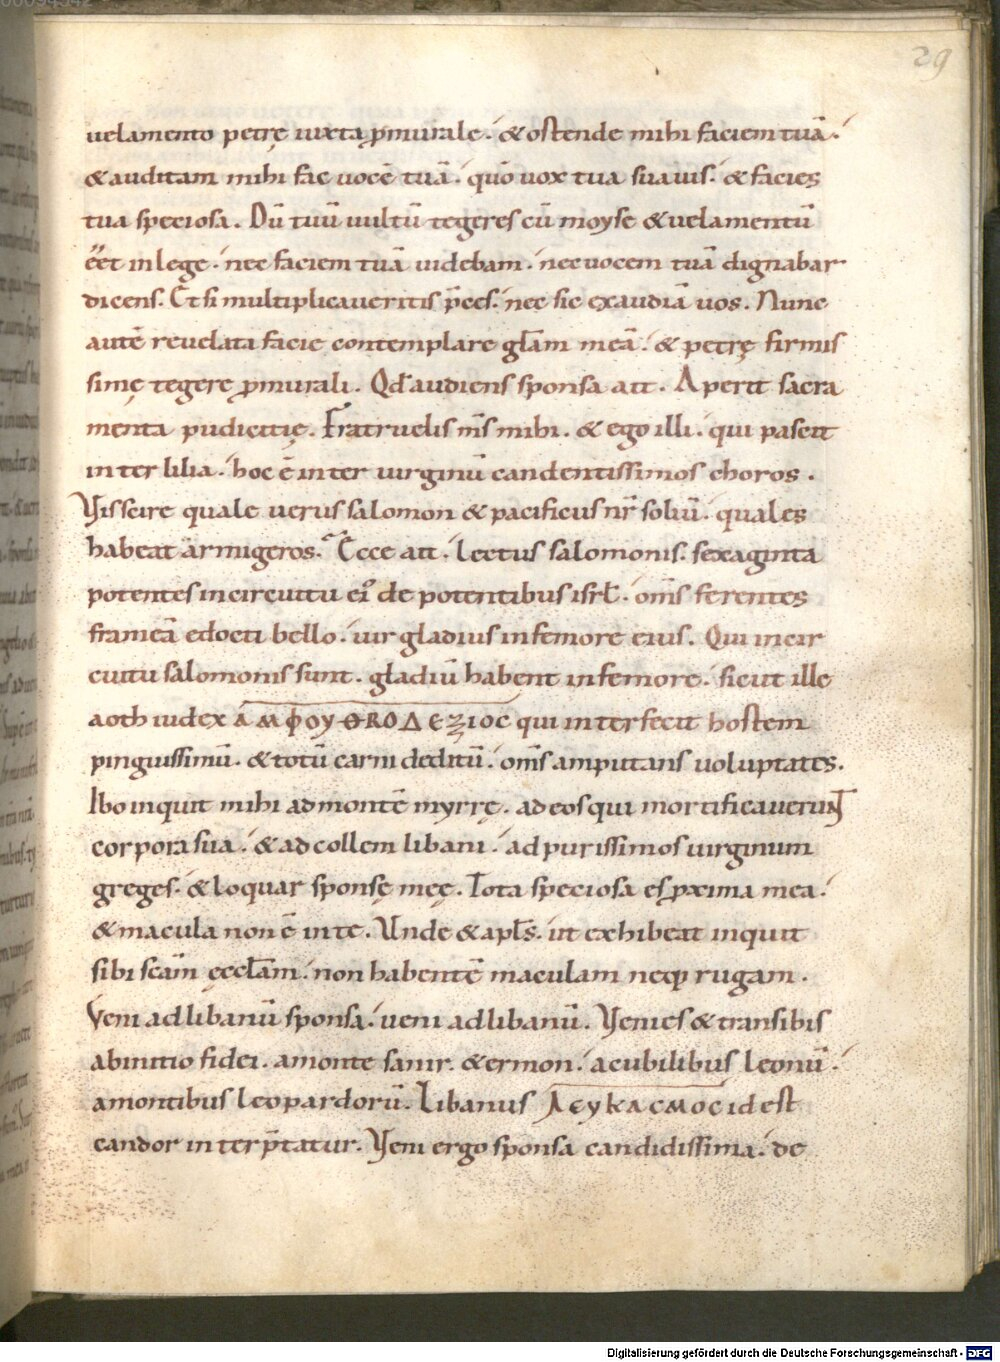 29
uelamento petrę iuxta ꝓmurale. & ostende mihi faciem tuā.
& auditam mihi fac uocē tuā. quō uox tua suauis. & facies
tua speciosa. Dū tuū uultū tegeres cū moyse & uelamentū
eēt in lege. nec faciem tuā uidebam. nec uocem tuā dignabar
dicens. Et si multiplicaueritis p̄ces. nec sic exaudiā uos. Nunc
autē reuelata facie contemplare gl̄am meā. & petrę firmis
simę tegere ꝓmurali. Qd̄ audiens sponsa ait. Aperit sacra
menta pudicitię. Fratruelis m̄s mihi. & ego illi. qui pascit
inter lilia. hoc ē inter uirginū candentissimos choros.
Vis scire quale uerus salomon & pacificus nr̄ soliū. quales
habeat armigeros. Ecce ait. lectus salomonis. sexaginta
potentes in circuitu ei' de potentibus isrl̄. om̄s ferentes
frameā edocti bello. uir gladius in femore eius. Qui in cir
cuitu salomonis sunt. gladiū habent in femore. sicut ille
aoth iudex ΑΜΦΟΥΘΡΟΔΕΞΙΟC qui interfecit hostem
pinguissimū. & totū carni deditū. om̄s amputans uoluptates.
Ibo inquit mihi ad montē myrrę. ad eos qui mortificauerunt
corpora sua. & ad collem libani. ad purissimos uirginum
greges. & loquar sponsę meę. Tota speciosa es ꝓxima mea.
& macula non ē in te. Unde & apl̄s. ut exhibeat inquit
sibi sc̄am ęccl̄am. non habentē maculam neq; rugam.
Veni ad libanū sponsa. ueni ad libanū. Venies & transibis
ab initio fidei. a monte sanir. & ermon. a cubilibus leonū.
a montibus leopardorū. Libanus ΛΕΥΚΑCΜΟC id est
candor interp̄tatur. Veni ergo sponsa candidissima. de
Digitalisierung gefördert durch die Deutsche Forschungsgemeinschaft - DFG